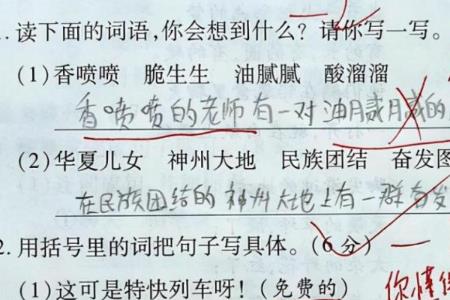 1.读下面的词语,你会想到什么?请你写一写。
(1)香喷喷 脆生生 油腻腻 酸溜溜
香喷喷的老师有一对油腻腻的
(2)华夏儿女 神州大地 民族团结 奋发图
在民族团结的神州大地上有一群奋发
2.用括号里的词把句子写具体。(6分)
(1)这可是特快列车呀!(免费的)